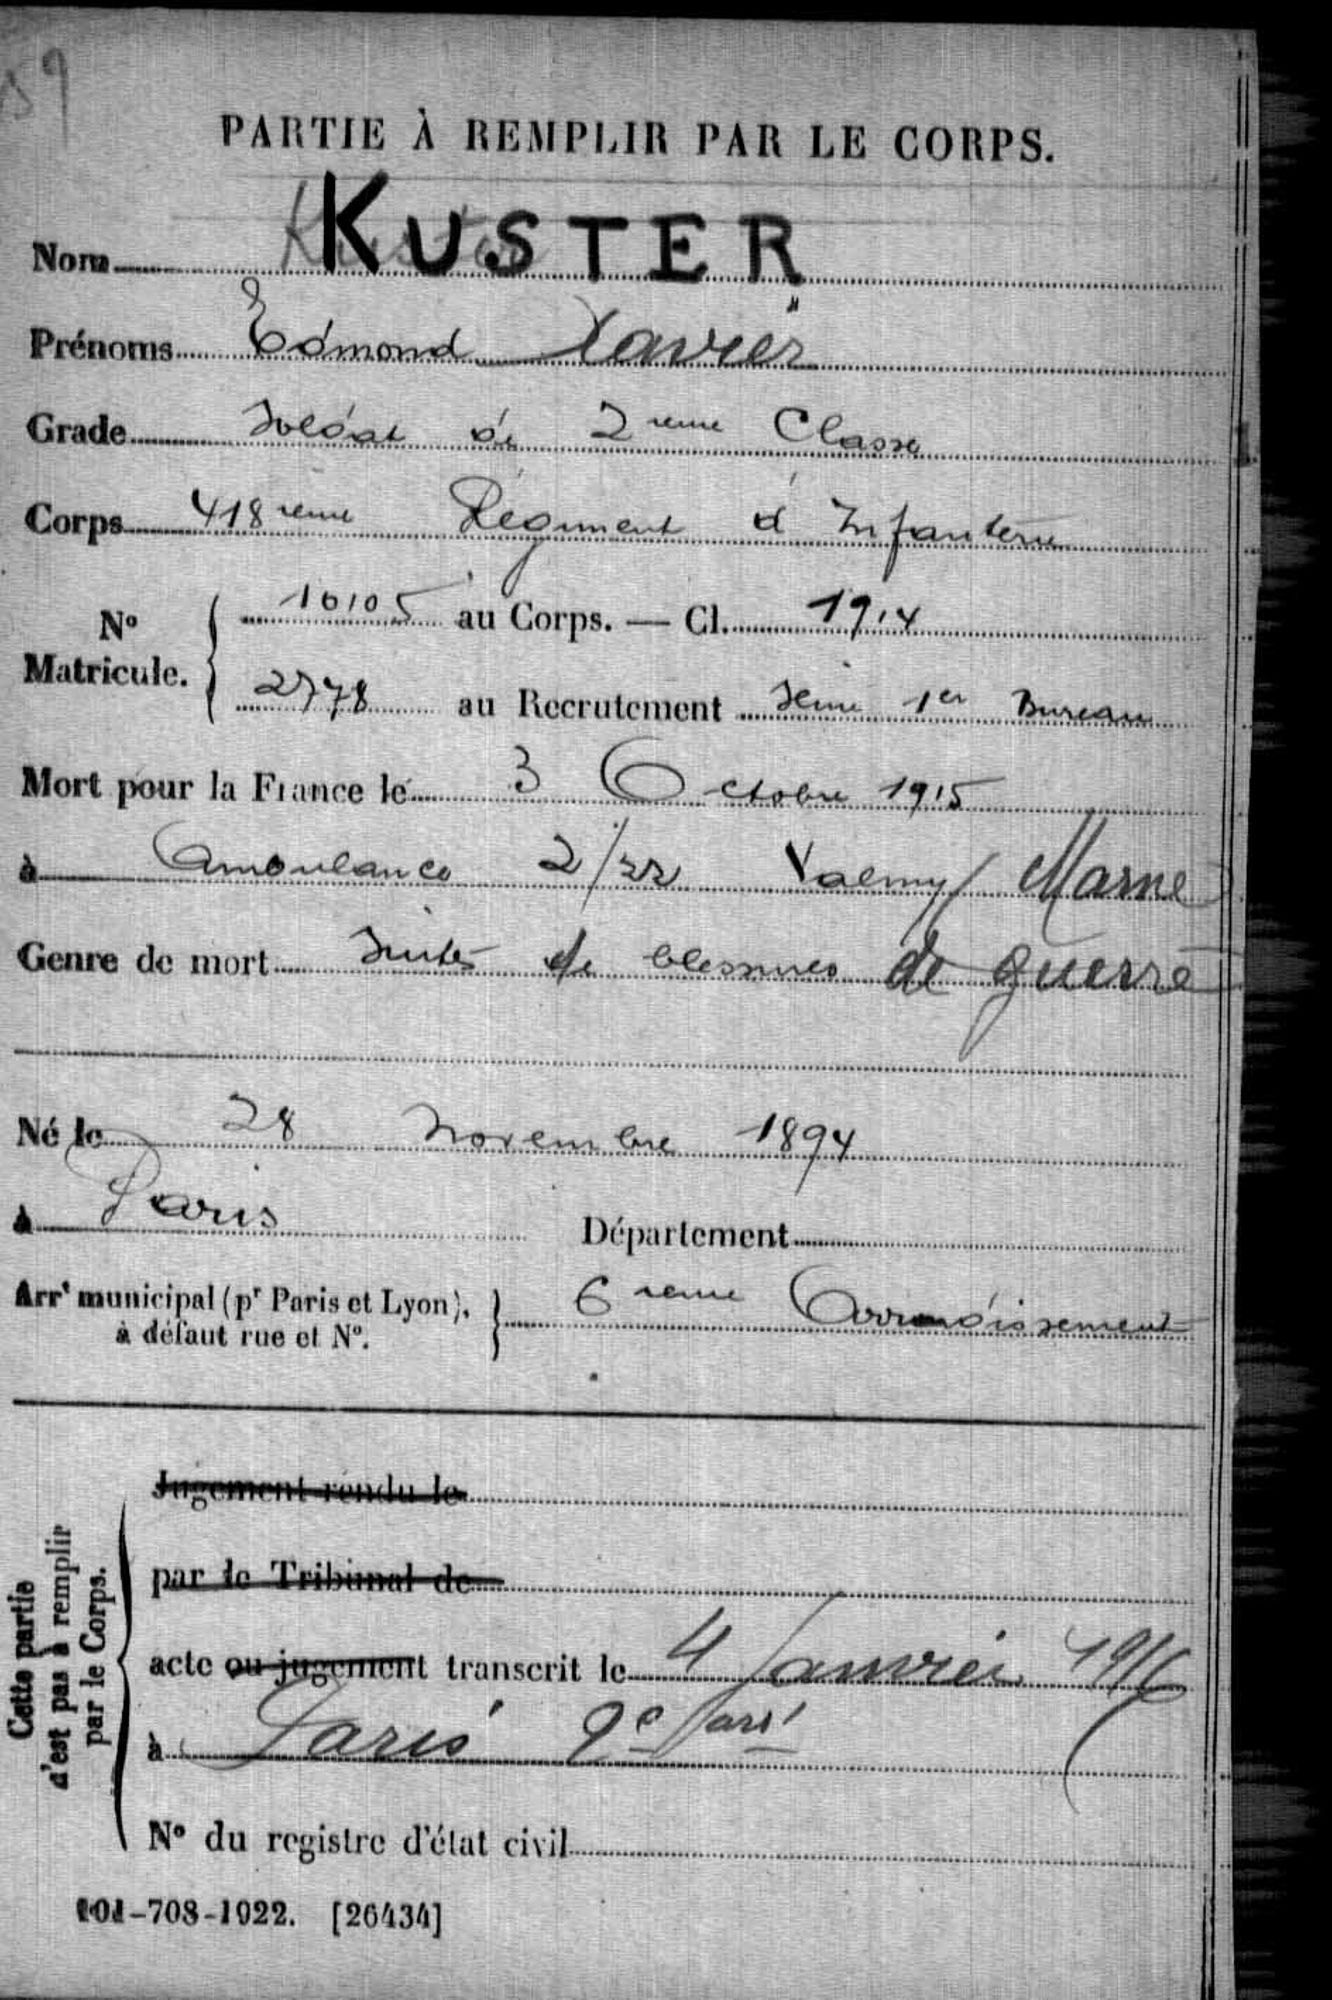 59
PARTIE À REMPLIR PAR LE CORPS.
Nom KUSTER
Prénoms Edmond Xavier
Grade Soldat de 2ieme Classe
Corps 418ieme Régiment d'Infanterie
N° Matricule. 10105 au Corps. — Cl. 1914
2778 au Recrutement Seine 1er Bureau
Mort pour la France le 3 Octobre 1915
à Ambulance 2/22 Valmy Marne
Genre de mort Suites de blessures de guerre
Né le 28 Novembre 1894
à Paris Département
Arrt municipal (pr Paris et Lyon), à défaut rue et N°. 6ieme Arrondissement
Cette partie d'est pas à remplir par le Corps.
Jugement rendu le
par le Tribunal de
acte ou jugement transcrit le 4 Janvier 1916
à Paris 9e arrt
N° du registre d'état civil
101-708-1922. [26434]